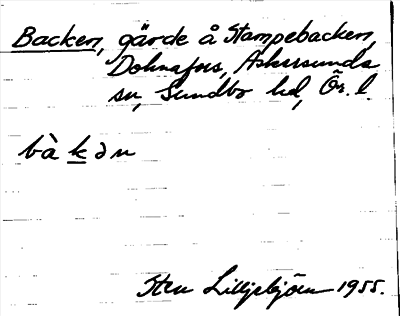 Backen, gärde å Stampebacken,
Dohnafors, Askersunds
sn, Sundbo hd, Ör. l.
bà k ə n
Sten Lilljebjörn 1955.